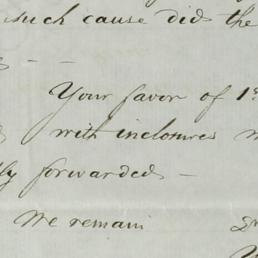 such cause did the
Your favor of 1st
with inclosures
forwarded —
We remain